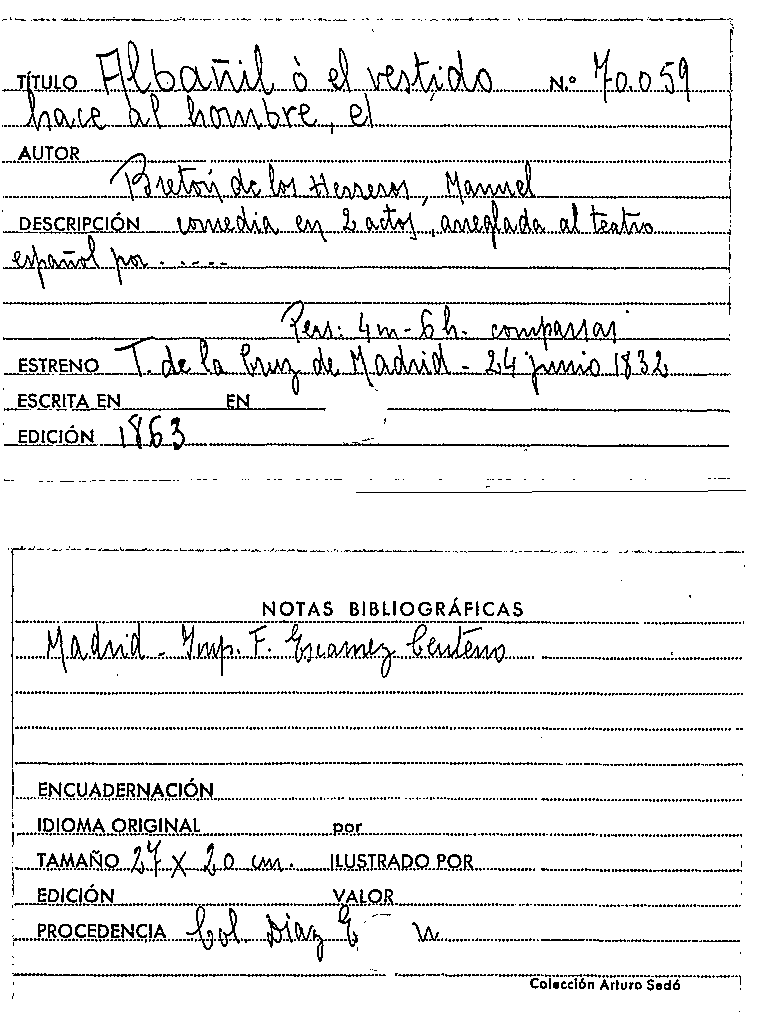 TÍTULO Albañil ò el vestido N.º 70.059
hace al hombre, el
AUTOR
Bretón de los Herreros, Manuel
DESCRIPCIÓN comedia en 2 actos, arreglada al teatro
español por . . - - -
Pers: 4m - 6h. comparsas
ESTRENO T. de la Cruz de Madrid - 24 junio 1832
ESCRITA EN EN
EDICIÓN 1863
NOTAS BIBLIOGRÁFICAS
Madrid - Imp. F. Escamez Centeno
ENCUADERNACIÓN
IDIOMA ORIGINAL por
TAMAÑO 27 X 20 cm. ILUSTRADO POR
EDICIÓN VALOR
PROCEDENCIA Col Diaz
Colección Arturo Sedó